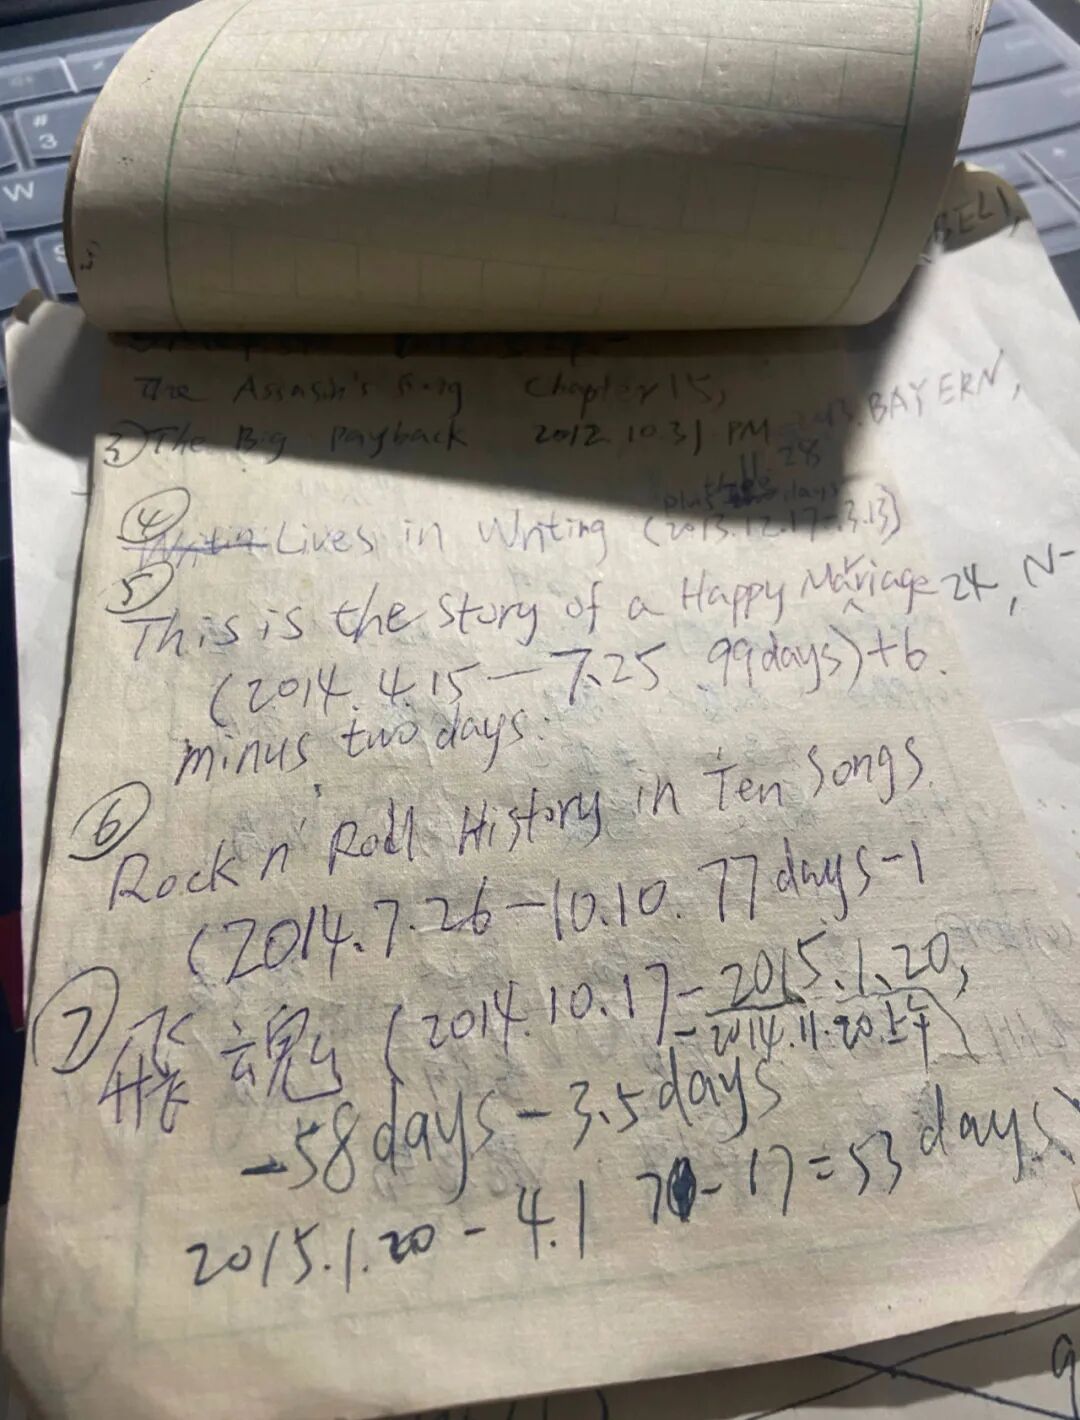 The Assasin's Song Chapter 15,
③ The Big payback 2012.10.31 PM
BAYERN,
11.28
④
Lives in Writing (2013.12.17-3.13)
⑤
This is the Story of a Happy Marriage 24, N-
(2014.4.15—7.25 99days)+6.
minus two days.
⑥
Rock n' Roll History in Ten Songs.
(2014.7.26—10.10. 77days-1
⑦
魂 (2014.10.17-2015.1.20,
-2014.11.20上午)
-58days-3.5days
2015.1.20-4.1 -17=53 days)
# 3
W
S
BEL),
9